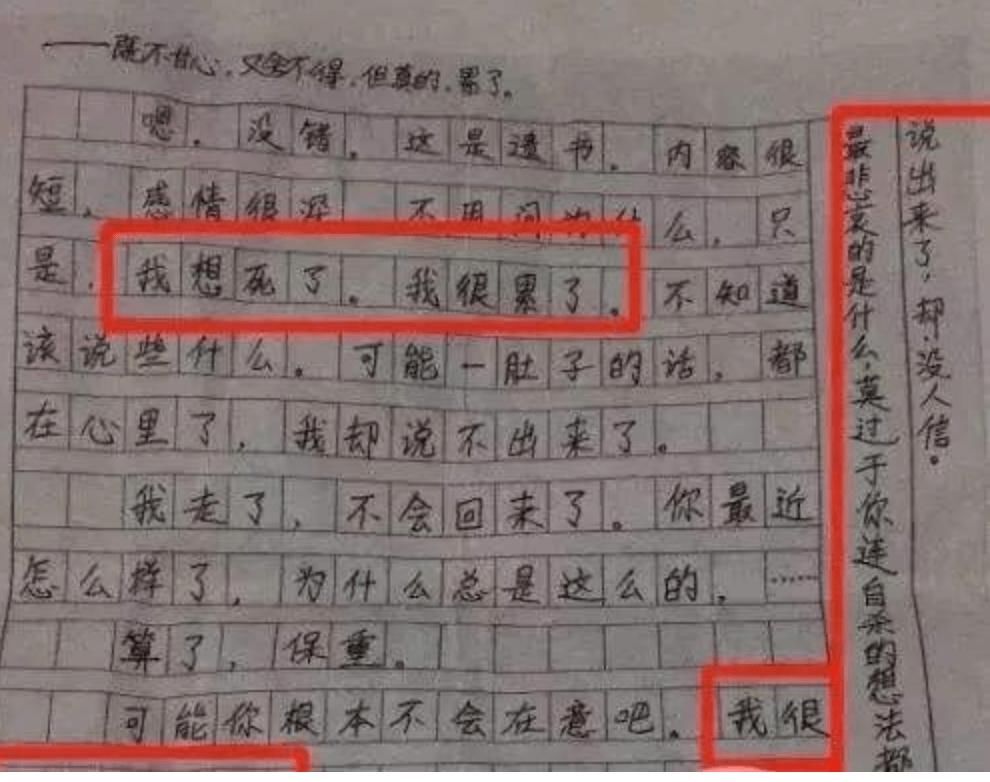 ——既不甘心,又舍不得,但真的,累了。
嗯。没错。这是遗书。内容很
短,感情很深 不用问为什么,只
是,我想死了。我很累了。不知道
该说些什么。可能一肚子的话,都
在心里了,我却说不出来了。
我走了,不会回来了。你最近
怎么样了,为什么总是这么的,……
算了,保重。
可能你根本不会在意吧。我很
最悲哀的是什么,莫过于你连自杀的想法都
说出来了,却没人信。